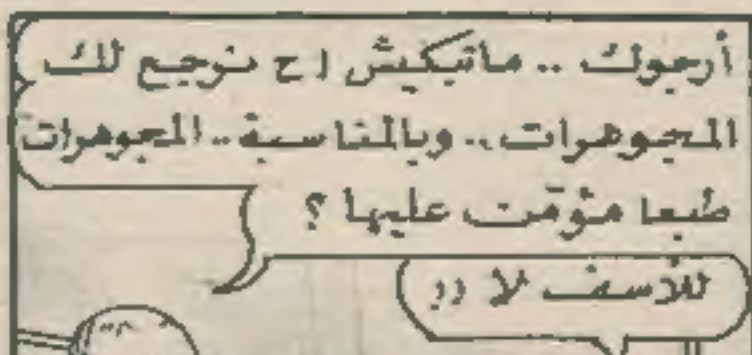 أرجوك .. ماتبكيش رح نرجع لك
المجوهرات .. وبالمناسبة .. المجوهرات
طبعا مؤمن عليها ؟
للأسف لا !!